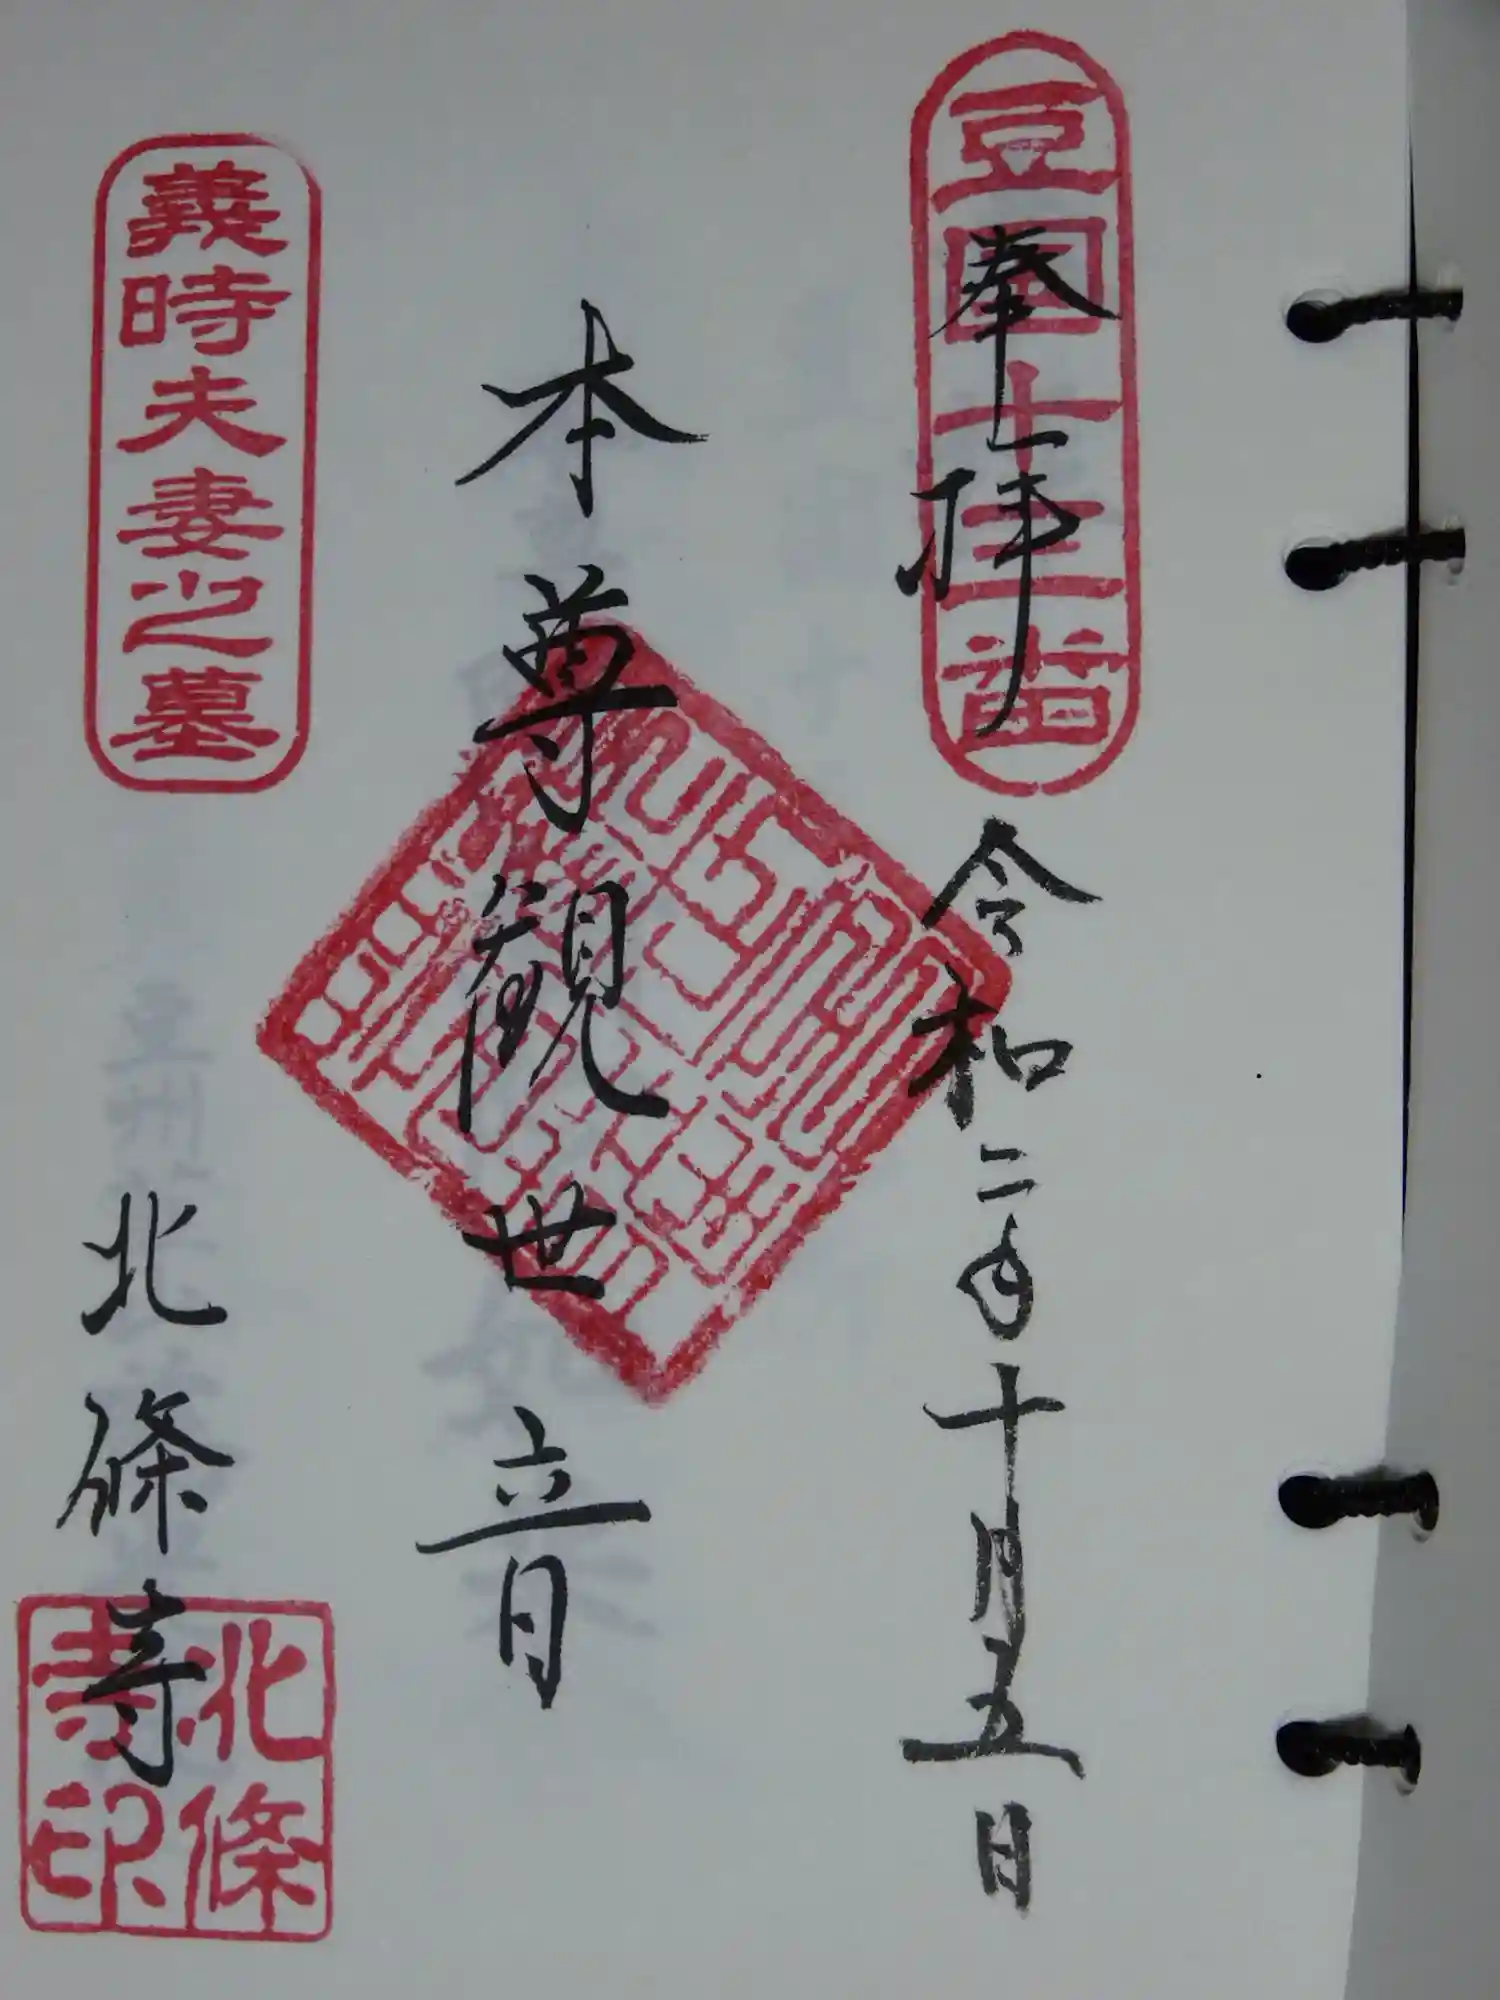 豆国十三番
奉上拝
令和二年十月五日
本尊観世音
義時夫妻之墓
北條寺
北條寺印